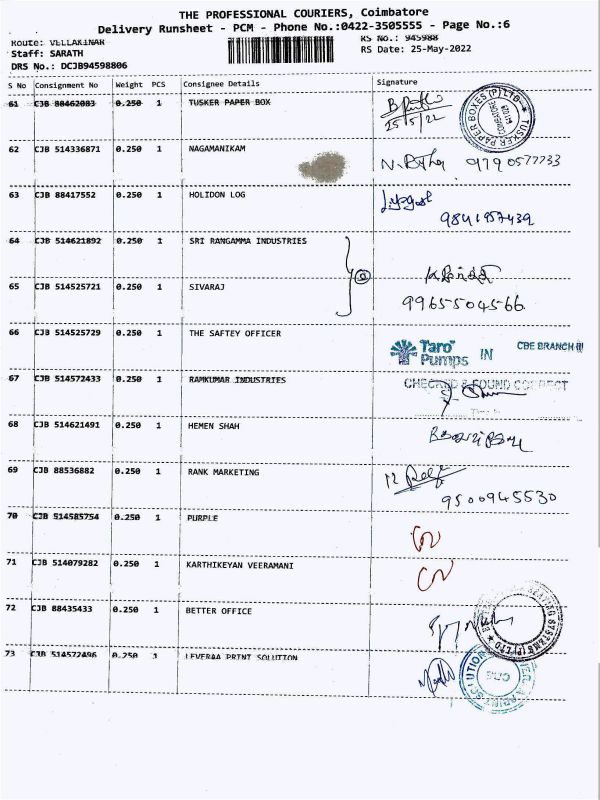 THE PROFESSIONAL COURIERS, Coimbatore
Delivery Runsheet - PCM - Phone No.:0422-3505555 - Page No.:6
Route: VELLAKINAR
RS No.: 945988
Staff: SARATH
RS Date: 25-May-2022
DRS No.: DCJB94598806
S No Consignment No Weight PCS Consignee Details Signature
61 CJB 88462083 0.250 1 TUSKER PAPER BOX
25/5/22
TUSKER PAPER BOXES (P) LTD
COIMBATORE
62 CJB 514336871 0.250 1 NAGAMANIKAM
9790577733
63 CJB 88417552 0.250 1 HOLIDON LOG
9841957439
64 CJB 514621892 0.250 1 SRI RANGAMMA INDUSTRIES
65 CJB 514525721 0.250 1 SIVARAJ
9965504566
66 CJB 514525729 0.250 1 THE SAFTEY OFFICER
Taro Pumps IN CBE BRANCH
67 CJB 514572433 0.250 1 RAMKUMAR INDUSTRIES
CHECKED & FOUND CORRECT
68 CJB 514621491 0.250 1 HEMEN SHAH
69 CJB 88536882 0.250 1 RANK MARKETING
9500945530
70 CJB 514585754 0.250 1 PURPLE
71 CJB 514079282 0.250 1 KARTHIKEYAN VEERAMANI
72 CJB 88435433 0.250 1 BETTER OFFICE
73 CJB 514572496 0.250 1 LEVERAA PRINT SOLUTION